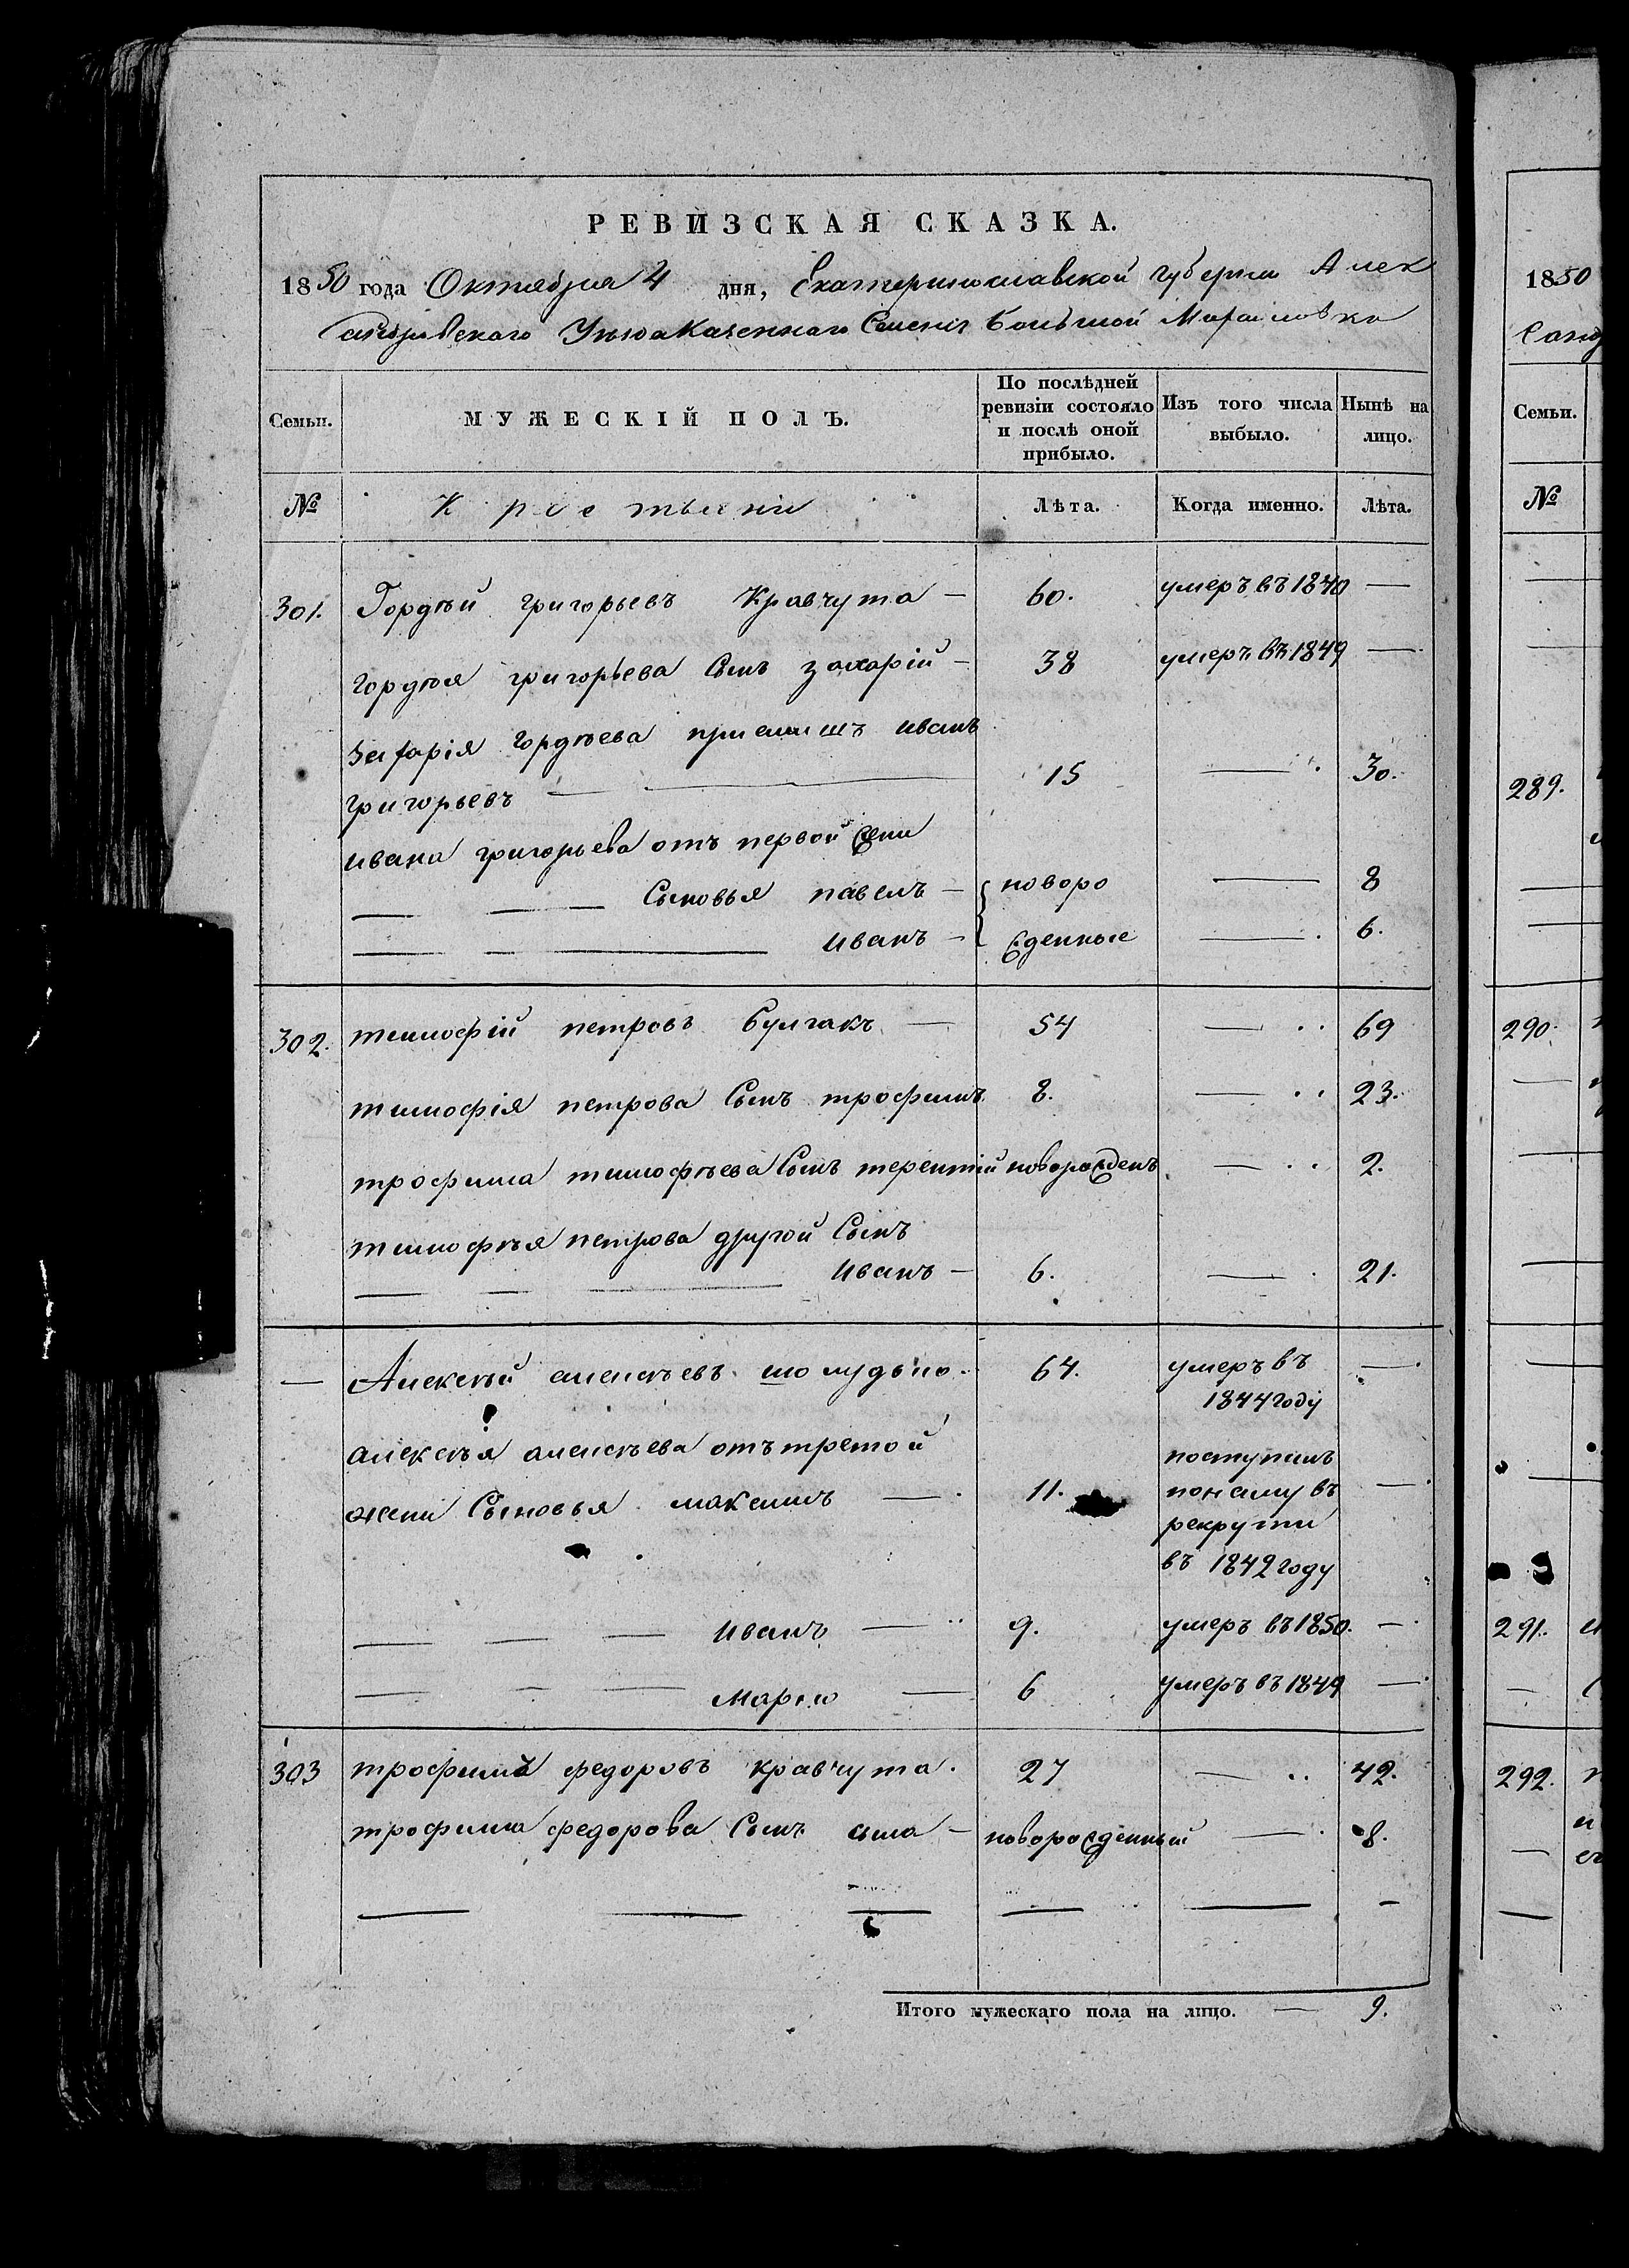 РЕВИЗСКАЯ СКАЗКА.
1850 года Октября 4 дня, Екатеринославской губернии Алек
сандровского Уезда Казенного Селения Большой Михайловки
Семьи.
МУЖЕСКІЙ ПОЛЪ.
По послѣдней ревизіи состояло и послѣ оной прибыло.
Изъ того числа выбыло.
Нынѣ на лицо.
№ Крестьяни Лѣта. Когда именно. Лѣта.
301. Гордѣй григорьевъ Кравчута — 60. умеръ въ 1840 —
гордѣя григорьева Сынъ захарій — 38 умеръ въ 1849 —
захарія гордѣева приемишъ иванъ
григорьевъ — 15 — 30.
ивана григорьева отъ первой жени
— — Сыновья павелъ — новоро — 8
— — иванъ — жденные — 6.
302. тимофій петровъ булгакъ — 54 — 69
тимофія петрова Сынъ трофимъ 8. — 23.
трофима тимофѣева Сынъ терентій новорожденъ — 2.
тимофѣя петрова другой Сынъ
— — — иванъ — 6. — 21.
— Алексѣй алексѣевъ шолудько. 64. умеръ въ —
1844 годі
алексѣя алексѣева отъ третой
жени Сыновья максимъ — 11. поступилъ
по найму въ —
рекрути
въ 1842 году
— — — иванъ — 9. умеръ въ 1850. —
— — — Марко — 6 умеръ въ 1849 —
303 трофимъ федоровъ кравчута. 27 — 42.
трофима федорова Сынъ сила — новорожденный — 8.
— — — — — —
Итого мужескаго пола на лицо. — 9.
1850
Санд
Семьи.
№
289.
290.
291.
292.